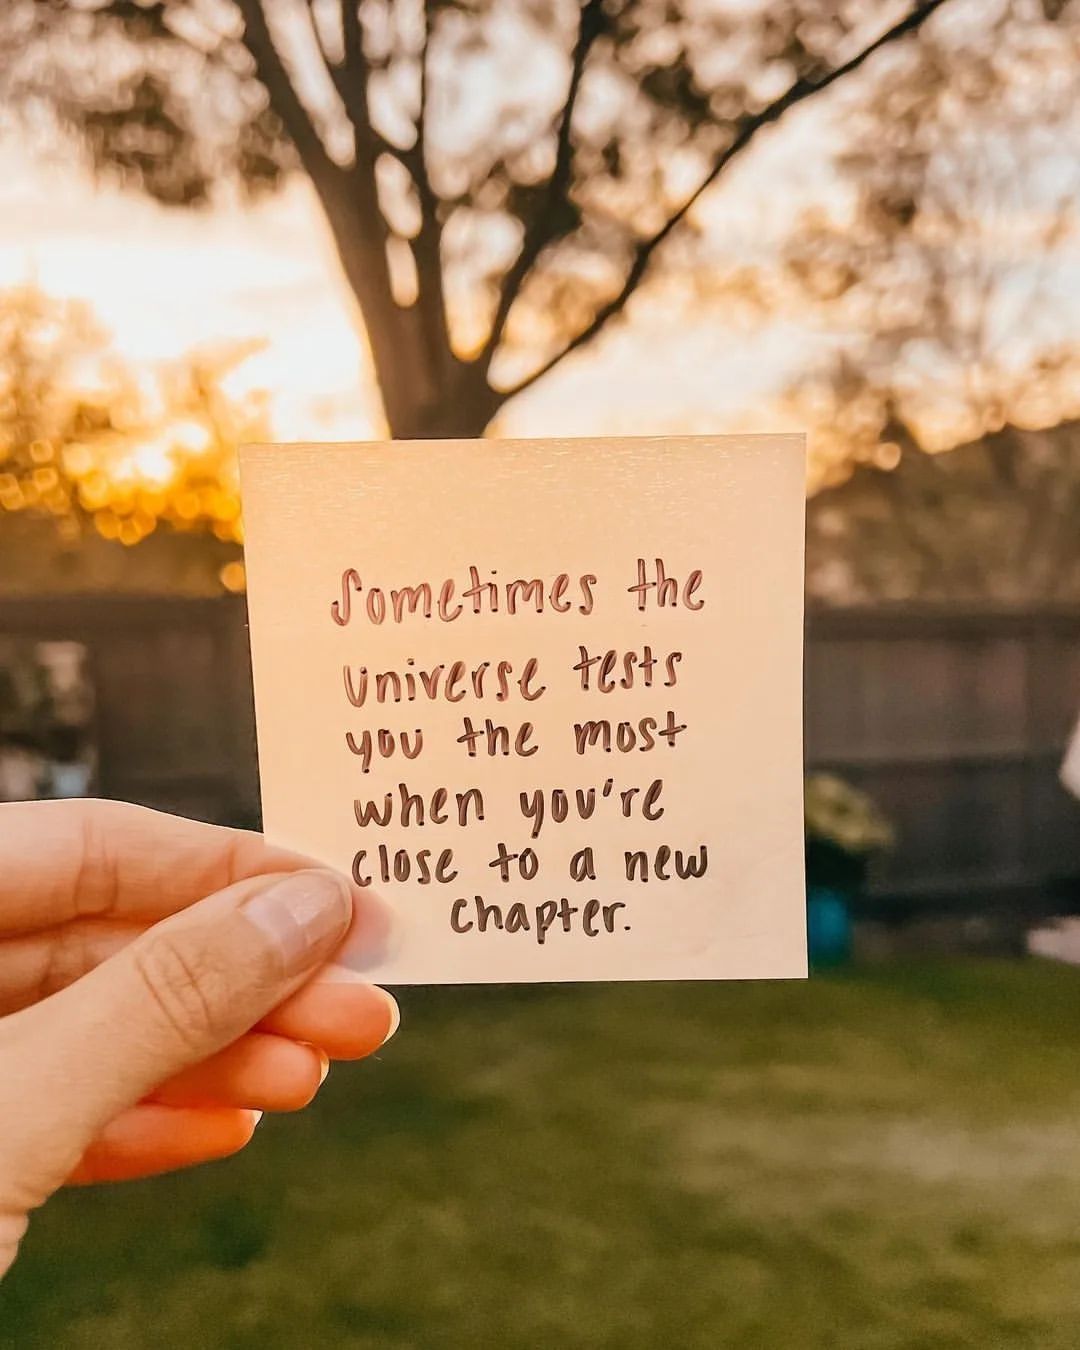 Sometimes the
universe tests
you the most
when you're
close to a new
chapter.